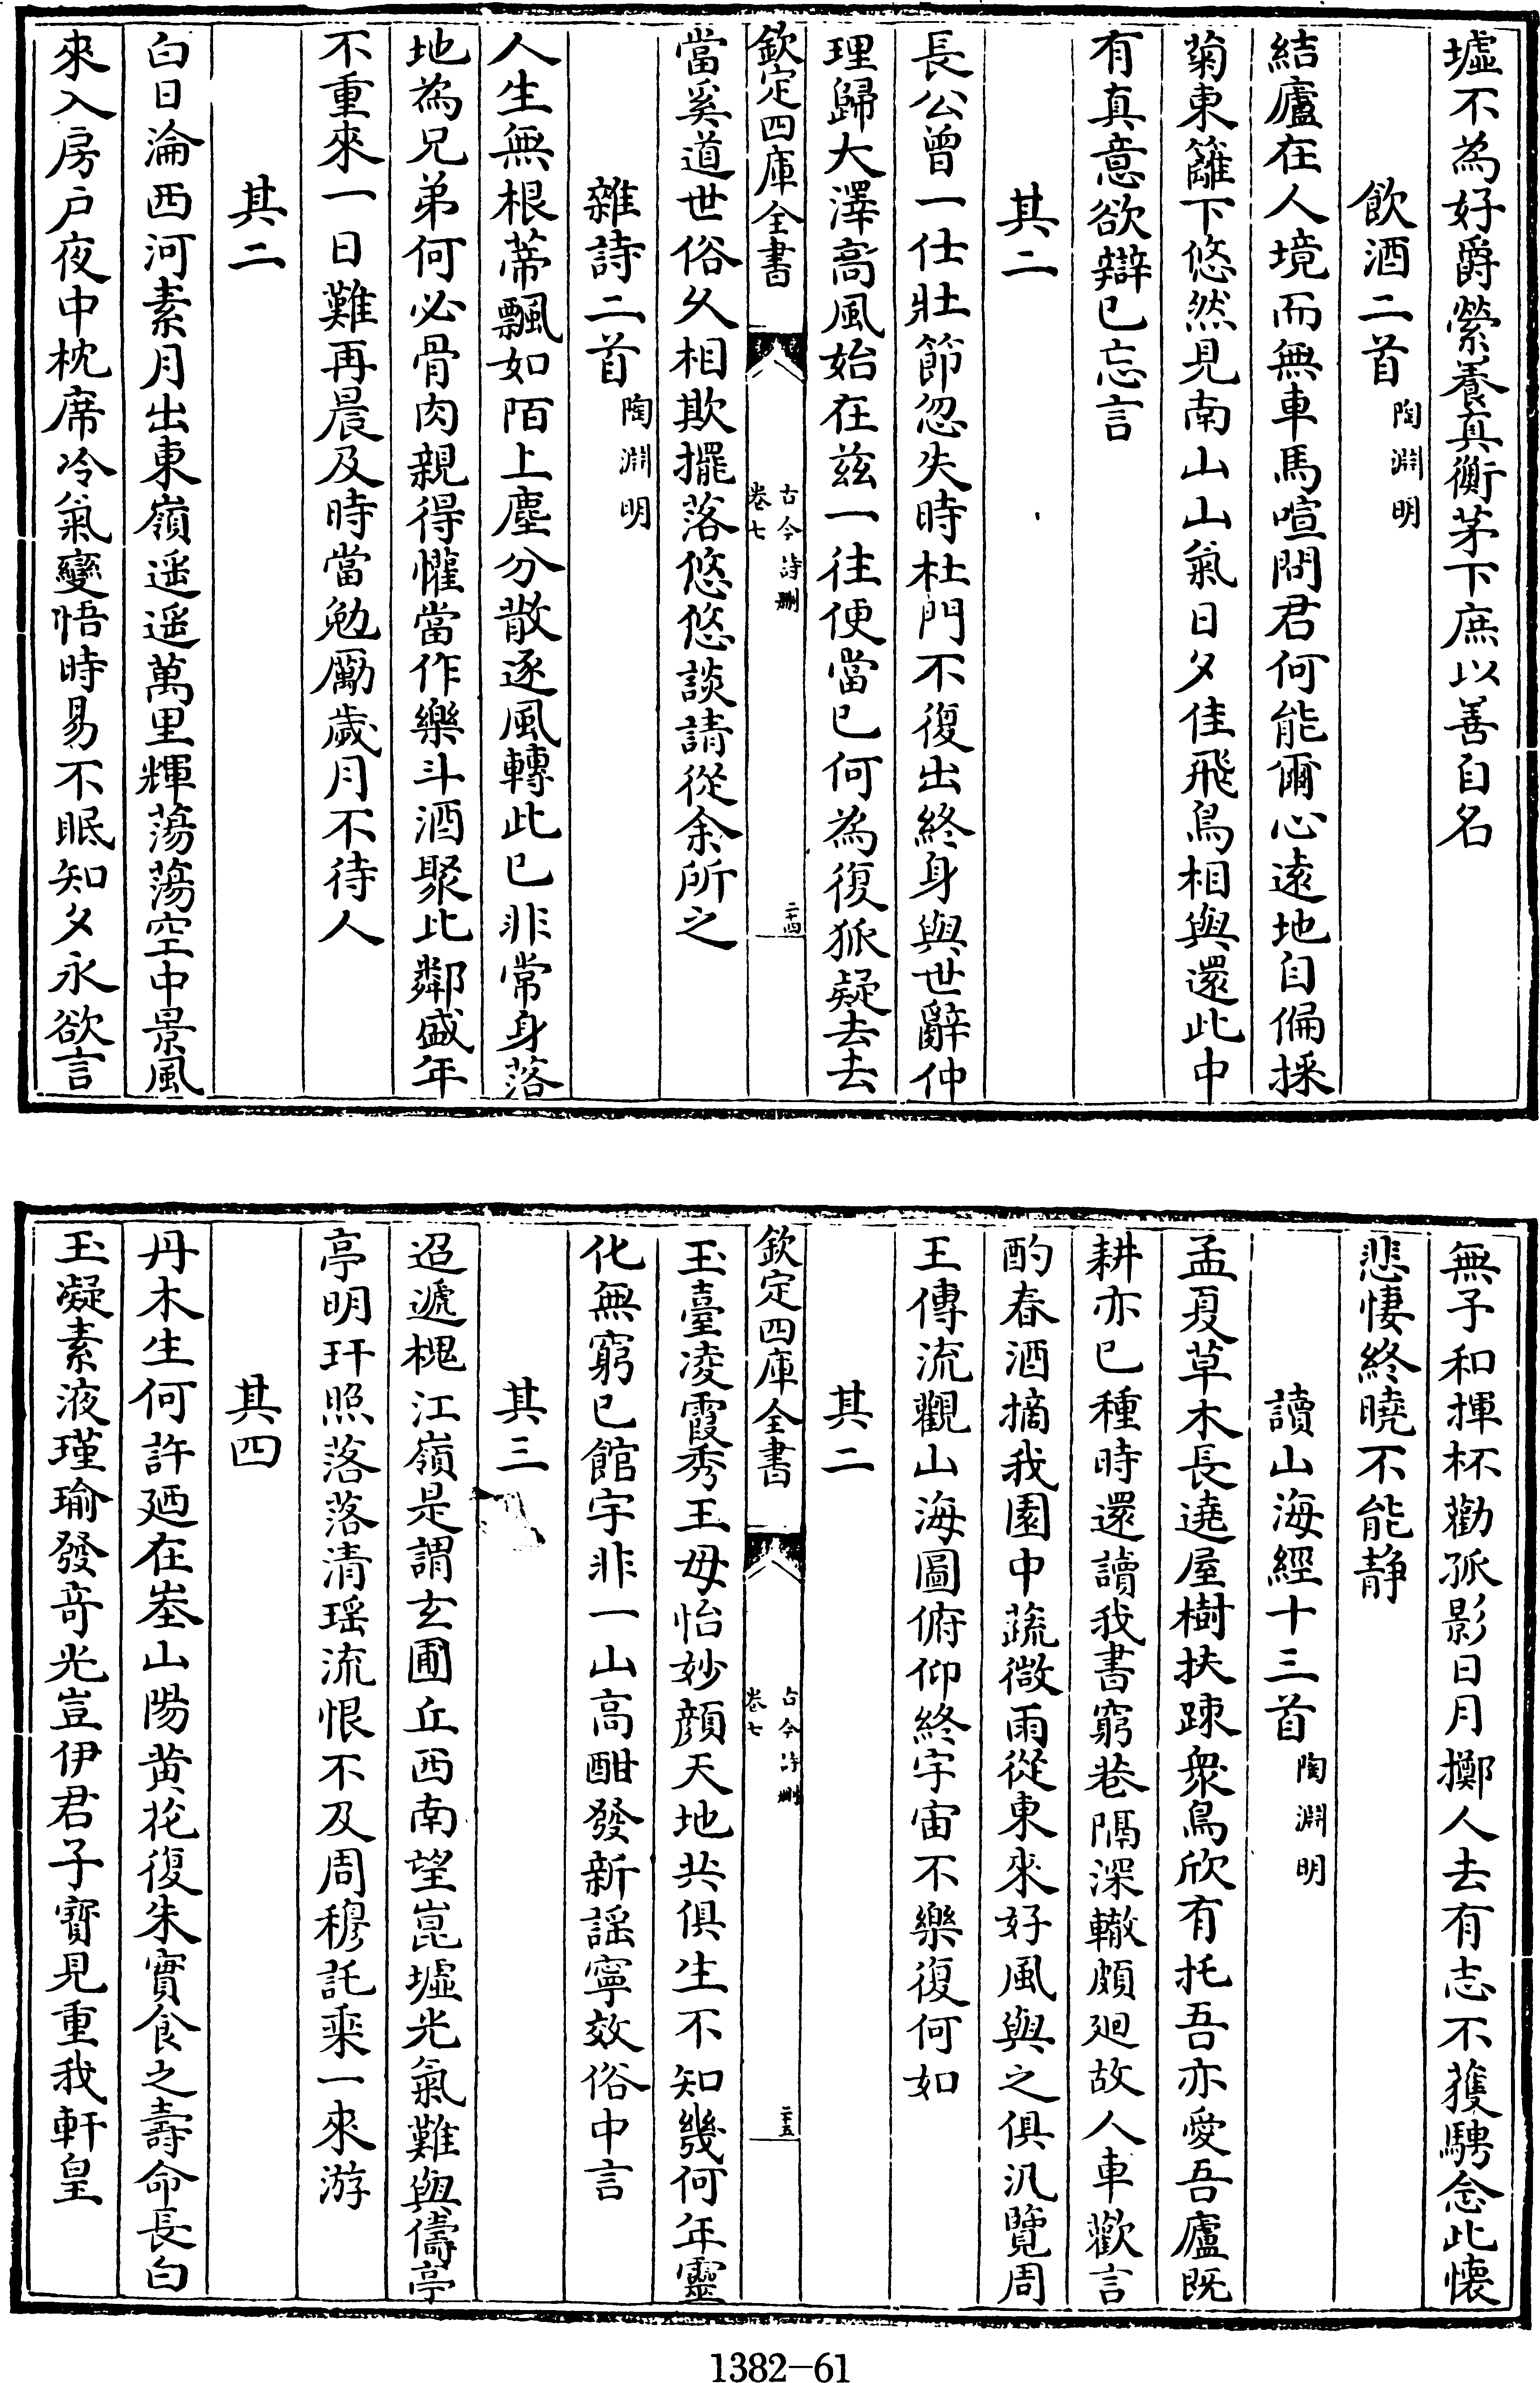 墟不為好爵縈養真衡茅下庶以善自名
飲酒二首陶淵明
結廬在人境而無車馬喧問君何能爾心遠地自偏採
菊東籬下悠然見南山山氣日夕佳飛鳥相與還此中
有真意欲辯已忘言
其二
長公曾一仕壯節忽失時杜門不復出終身與世辭仲
理歸大澤高風始在兹一往便當已何為復狐疑去去
欽定四庫全書
古今詩刪
卷七
二十四
當奚道世俗久相欺擺落悠悠談請從余所之
雜詩二首陶淵明
人生無根蒂飄如陌上塵分散逐風轉此已非常身落
地為兄弟何必骨肉親得懽當作樂斗酒聚比鄰盛年
不重來一日難再晨及時當勉勵歲月不待人
其二
白日淪西河素月出東嶺遥遥萬里輝蕩蕩空中景風
來入房户夜中枕席冷氣變悟時易不眠知夕永欲言
無予和揮杯勸孤影日月擲人去有志不獲騁念此懷
悲悽終曉不能静
讀山海經十三首陶淵明
孟夏草木長遶屋樹扶疎衆鳥欣有托吾亦愛吾廬既
耕亦已種時還讀我書窮巷隔深轍頗廻故人車歡言
酌春酒摘我園中蔬微雨從東來好風與之俱汎覽周
王傳流觀山海圖俯仰終宇宙不樂復何如
其二
欽定四庫全書
古今詩刪
卷七
二十五
玉臺凌霞秀王母怡妙顔天地共俱生不知幾何年靈
化無窮已館宇非一山高酣發新謡寧效俗中言
其三
迢遞槐江嶺是謂玄圃丘西南望崑墟光氣難與儔亭
亭明玕照落落清瑶流恨不及周穆託乘一來游
其四
丹木生何許廼在峚山陽黄花復朱實食之壽命長白
玉凝素液瑾瑜發奇光豈伊君子寶見重我軒皇
1382-61